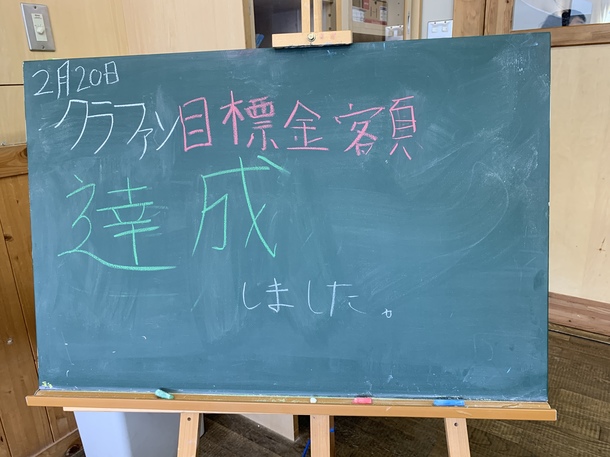 2月20日
クラファン目標金額
達成
しました。